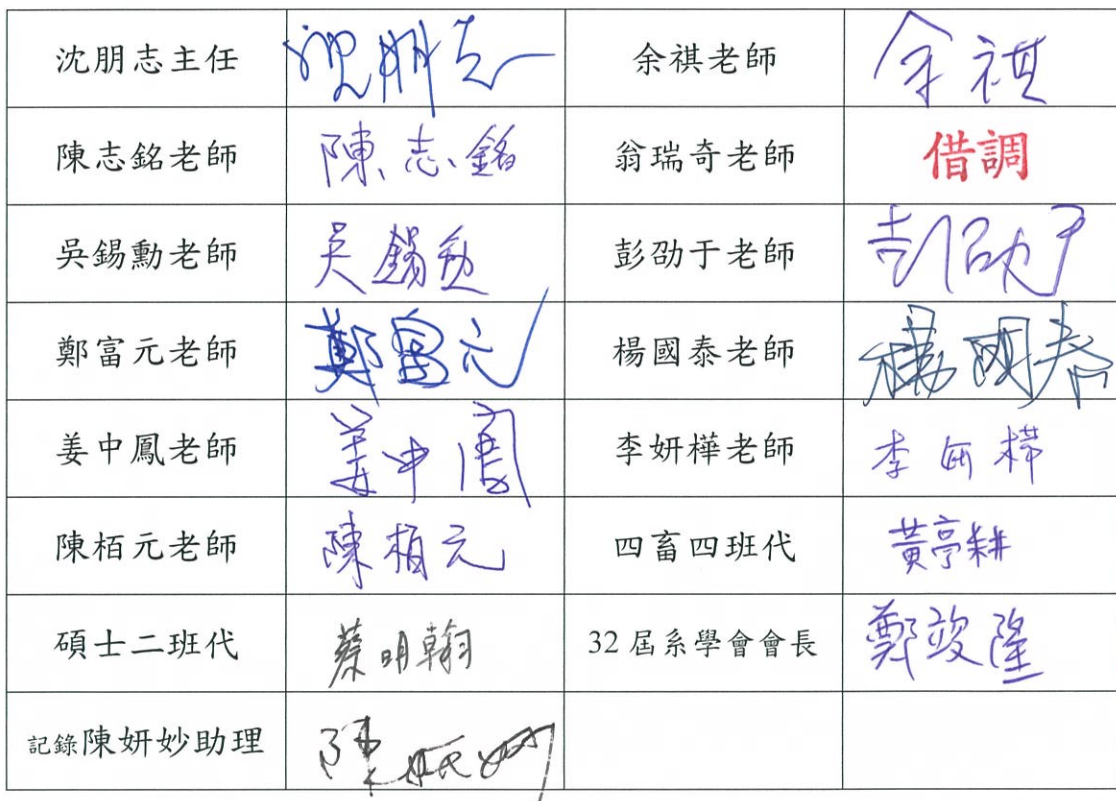 沈朋志主任 沈朋志 余祺老師 余祺
陳志銘老師 陳志銘 翁瑞奇老師 借調
吳錫勳老師 吳錫勳 彭劭于老師 彭劭于
鄭富元老師 鄭富元 楊國泰老師 楊國泰
姜中鳳老師 姜中鳳 李妍樺老師 李妍樺
陳栢元老師 陳栢元 四畜四班代 黃亭耕
碩士二班代 蔡明翰 32屆系學會會長 鄭竣隆
記錄陳妍妙助理 陳妍妙